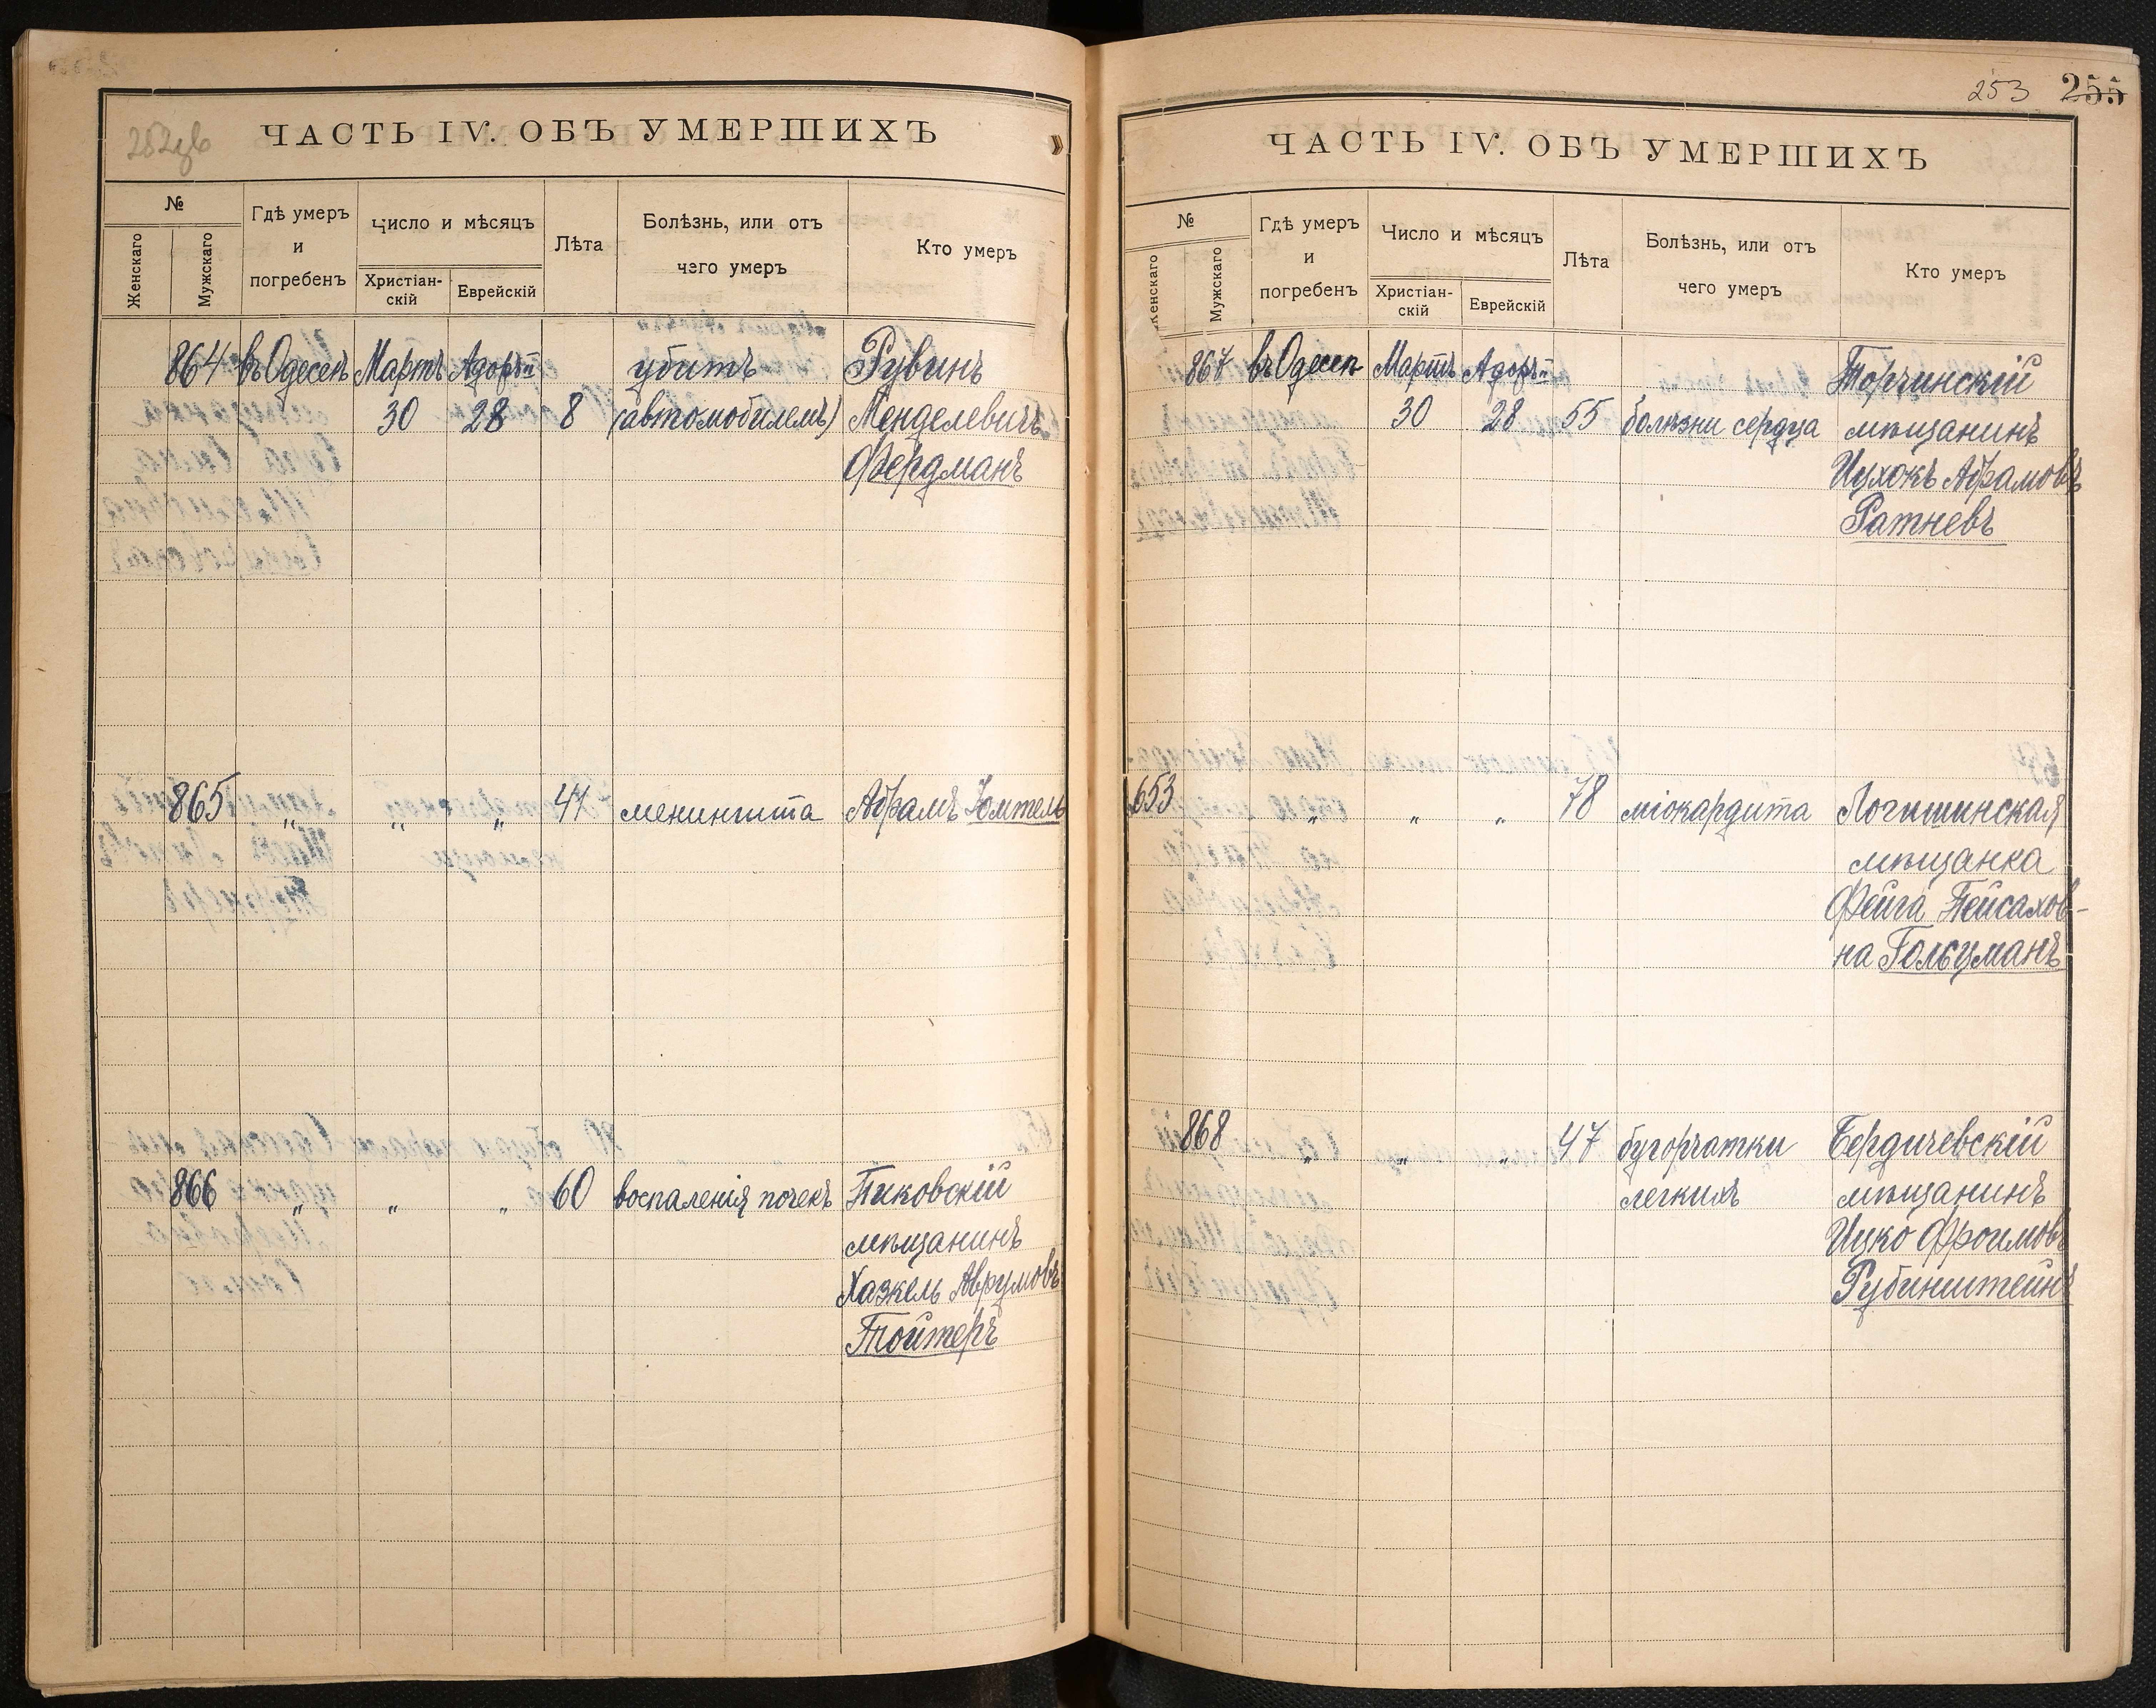 252зв
ЧАСТЬ IV. ОБЪ УМЕРШИХЪ
№
Женскаго
Мужскаго
Гдѣ умеръ
и
погребенъ
Число и мѣсяцъ
Христіан-
скій
Еврейскій
Лѣта
Болѣзнь, или отъ
чего умеръ
Кто умеръ
864 въ Одессѣ Мартъ Адоръ II убитъ Рувинъ
30 28 8 (автомобилемъ) Менделевичъ
Фердманъ
865 „ „ „ 41 менингита Абрамъ Юмтель
866 „ „ „ 60 воспаленія почекъ Пиковскій
мѣщанинъ
Хаэкель Аврумовъ
Тойтеръ
253 255
ЧАСТЬ IV. ОБЪ УМЕРШИХЪ
№
Женскаго
Мужскаго
Гдѣ умеръ
и
погребенъ
Число и мѣсяцъ
Христіан-
скій
Еврейскій
Лѣта
Болѣзнь, или отъ
чего умеръ
Кто умеръ
867 въ Одессѣ Мартъ Адоръ II Торчинскій
30 28 55 болѣзни сердца мѣщанинъ
Ицхокъ Абрамовъ
Ратневъ
653 „ „ „ 78 міокардита Логишинская
мѣщанка
Фейга Пейсахов-
на Гольцманъ
868 „ „ „ 47 бугорчатки Бердичевскій
легкихъ мѣщанинъ
Ицко Фроимовъ
Рубинштейнъ